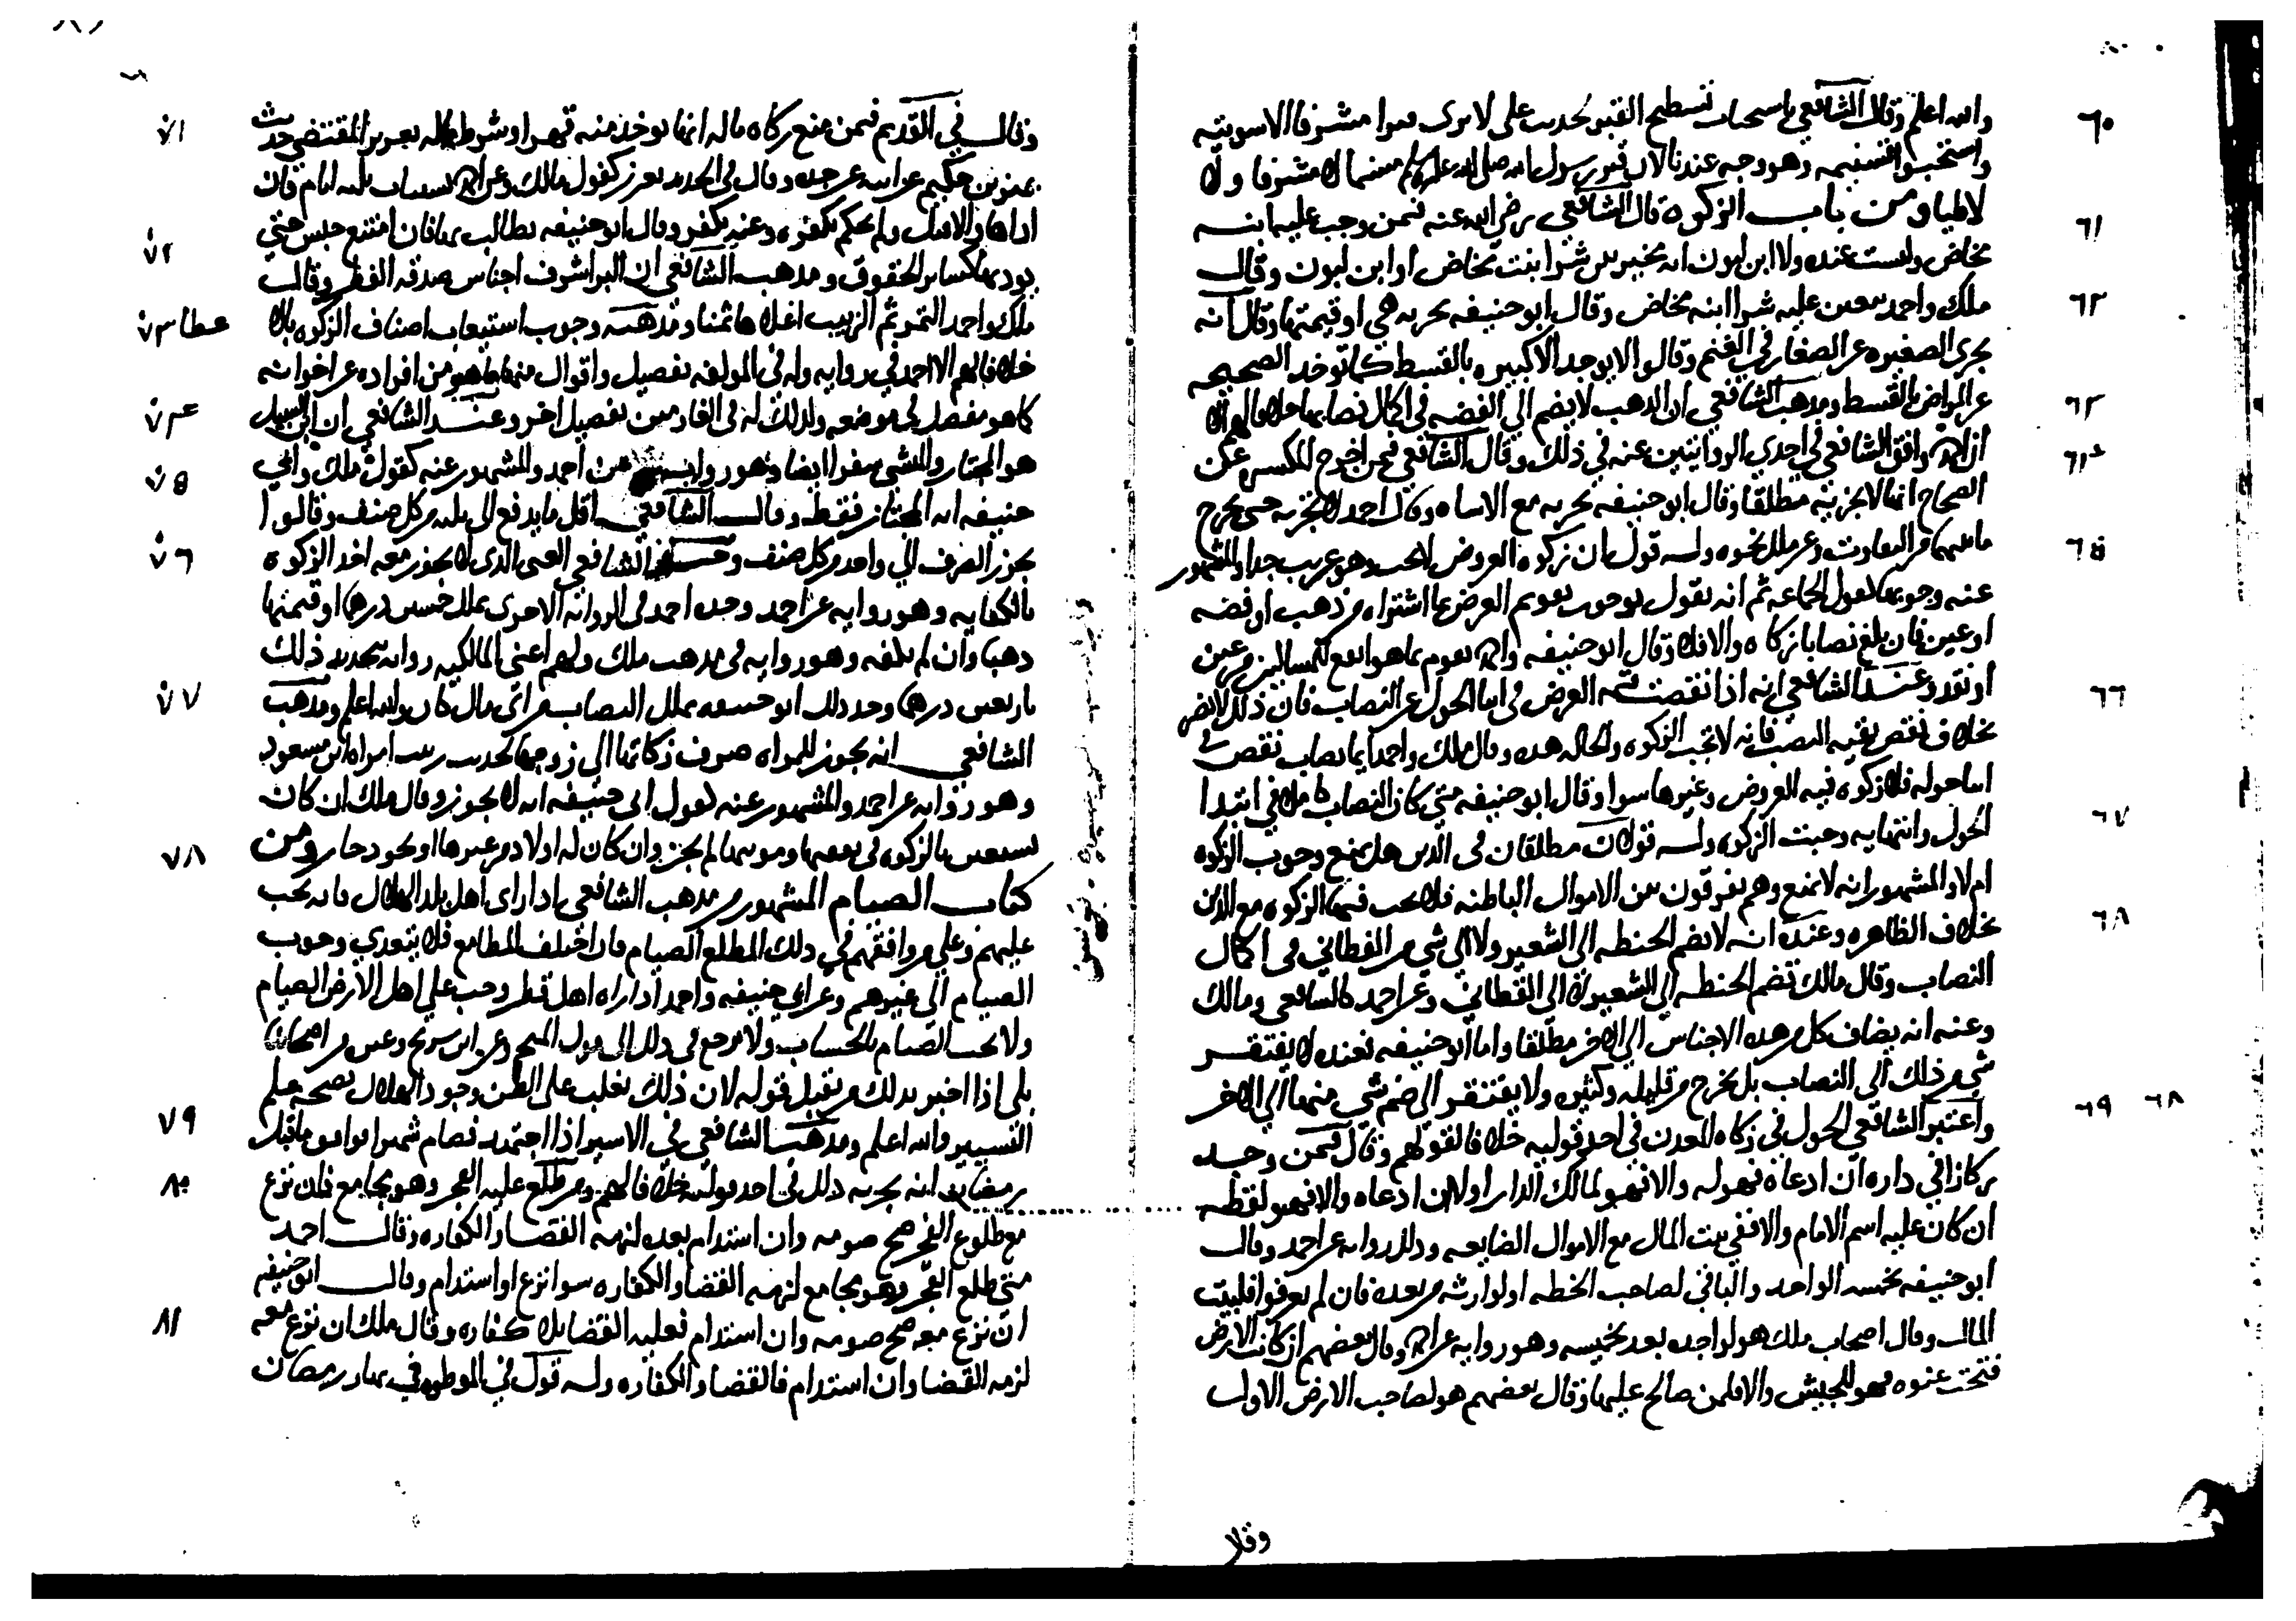 ٦٠
والله اعلم وقال الشافعي باستحباب تسطيح القبر لحديث على لا ترى قبرا مشرفا الا سويته
واستحبوا تسنيمه وهو وجه عندنا لان قبر رسول الله صلى الله عليه وسلم مسنما لا مشرفا ولا
لاطيا ومن باب الزكوة قال الشافعي رضي الله عنه فيمن وجب عليه ابنة
٦١
مخاض وليست عنده ولا ابن لبون انه مخير بين شرا بنت مخاض او ابن لبون وقال
ملك واحمد يتعين عليه شرا ابنه مخاض وقال ابو حنيفه يجزيه هي او قيمتها وقال انه
٦٢
يجزى الصغيره عن الصغار في الغنم وقالوا لا يوخذ الا كبيره بالقسط كما توخذ الصحيحه
عن المراض بالقسط ومذهب الشافعي ان الذهب لا يضم الى الفضه في اكمال نصابها خلافا لهم الا
٦٣
ان احمد وافق الشافعي في احدى الروايتين عنه في ذلك وقال الشافعي فيمن اخرج المكسره عن
٦٤
الصحاح انها لا تجزيه مطلقا وقال ابو حنيفه تجزيه مع الاساه وقال احمد لا تجزيه حتى يخرج
ما بينهما من التفاوت وعن ملك نحوه وله قول ان زكوة العروض لا تجب وهو غريب جدا والمشهور
٦٥
عنه وجوبها كقول الجماعه ثم انه يقول بوجوب تقويم العرض بما اشتراه من ذهب او فضه
او عين فان بلغ نصابا زكاه والا فلا وقال ابو حنيفه واحمد يقوم بما هو انفع للمساكين من عين
او نقد وعند الشافعي انه اذا نقصت قيمه العرض في اثنا الحول عن النصاب فان ذلك لا يضر
٦٦
بخلاف نقص بقيه النصب فانه لا تجب الزكوه والحاله هذه وقال ملك واحمد ايما نصاب نقص في
اثنا حوله فلا زكوه فيه العروض وغيرها سوا وقال ابو حنيفه متى كان النصاب كاملا في ابتدا
الحول وانتهايه وجبت الزكوه وله قولان مطلقان في الدين هل يمنع وجوب الزكوه
٦٧
ام لا والمشهور انه لا يمنع وهم يفرقون بين الاموال الباطنه فلا تجب فيها الزكوه مع الدين
بخلاف الظاهره وعنده انه لا يضم الحنطه الى الشعير ولا الى شي من القطاني في اكمال
٦٨
النصاب وقال مالك تضم الحنطه الى الشعير لا الى القطاني وعن احمد كالشافعي ومالك
وعنه انه يضاف كل من هذه الاجناس الى الاخر مطلقا واما ابو حنيفه فعنده لا يفتقر
شي من ذلك الى النصاب بل يخرج من قليله وكثيره ولا يفتقر الى ضم شي منها الى الاخر
٦٨ ٦٩
واعتبر الشافعي الحول في زكاه المعدن في احد قوليه خلافا لقولهم وقال فيمن وجد
ركازا في داره ان ادعاه فهو له والا فهو لمالك الدار اولا ان ادعاه والا فهو لقطه
ان كان عليه اسم الامام والا ففي بيت المال مع الاموال الضايعه وذلك روايه عن احمد وقال
ابو حنيفه يخمسه الواحد والباقي لصاحب الخطه او لوارثه من بعده فان لم يعرفوا فلبيت
المال وقال اصحاب ملك هو لواجده بعد تخميسه وهو روايه عن احمد وقال بعضهم ان كانت الارض
فتحت عنوه فهو للجيش والا فلمن صالح عليها وقال بعضهم هو لصاحب الارض الاول
وقال
وقال في القديم فيمن منع زكاه ماله انها توخذ منه قهرا وشطر ماله بعزير لمقتضى حديث
٧١
بهز بن حكيم عن ابيه عن جده وقال في الجديد يعزر كقول مالك وعن احمد يستتاب ثلثه ايام فان
اداها والا قتل ولم يحكم بكفره وعنه يكفر وقال ابو حنيفه يطالب بها فان امتنع حبس حتى
٧٢
يوديها كساير الحقوق ومذهب الشافعي ان البر اشرف اجناس صدقه الفطر وقال
ملك واحمد التمر ثم الزبيب اغلاها ثمنا ومذهبه وجوب استيعاب اصناف الزكوه بالا
عطا ٧٣
خلافا لهم الا احمد في روايه وله في المولفه تفصيل واقوال منها ما هو من افراده عن اخوانه
كما هو مفصل في موضعه ولذلك له في الغارمين تفصيل اخر وعند الشافعي ان ابن السبيل
٧٤
هو المجتاز والمنشي سفرا ايضا وهو روايه عن احمد والمشهور عنه كقول ملك وابي
٧٥
حنيفه انه المجتاز فقط وقال الشافعي اقل ما يدفع الى ثلثه من كل صنف وقالوا
يجوز الصرف الى واحد من كل صنف وحد الشافعي الغنى الذي لا يجوز معه اخذ الزكوه
٧٦
بالكفايه وهو روايه عن احمد وحده احمد في الروايه الاخرى بملك خمسين درهما او قيمتها
ذهبا وان لم يكفه وهو روايه في مذهب ملك ولهم اعنى المالكيه روايه بتحديد ذلك
باربعين درهما وحد ذلك ابو حنيفه بملك النصاب من اى مال كان والله اعلم ومذهب
٧٧
الشافعي انه يجوز للمراه صرف زكاتها الى زوجها لحديث زينب امراه ابن مسعود
وهو روايه عن احمد والمشهور عنه كقول ابي حنيفه انه لا يجوز وقال ملك ان كان
يستعين بالزكوه في نفعها وموونتها لم يجز وان كان له اولاد من غيرها او نحوه جاز ومن
٧٨
كتاب الصيام المشهور من مذهب الشافعي اذا راى اهل بلد الهلال فانه يجب
عليهم وعلى من وافقهم في ذلك المطلع الصيام فان اختلف المطالع فلا يتعدي وجوب
الصيام الى غيرهم وعن ابي حنيفه واحمد اذا راه اهل قطر وجب على اهل الارض الصيام
ولا يجب الصيام بالحساب ولا يرجع في ذلك الى قول المنجم وعن ابن سريج وغيره من اصحابنا
بلى اذا اخبر بذلك من يقبل قوله لان ذلك يغلب على الظن وجود الهلال بصحه علم
التسيير والله اعلم ومذهب الشافعي في الاسير اذا اجتهد فصام شهرا فوافق ما قبل
٧٩
رمضان انه يجزيه ذلك في احد قوليه خلافا لهم ومن طلع عليه الفجر وهو مجامع فان نزع
٨٠
مع طلوع الفجر صح صومه وان استدام بعده لزمه القضا والكفاره وقال احمد
متى طلع الفجر وهو مجامع لزمه القضا والكفاره سوا نزع او استدام وقال ابو حنيفه
ان نزع معه صح صومه وان استدام فعليه القضا بلا كفاره وقال ملك ان نزع معه
٨١
لزمه القضا وان استدام فالقضا والكفاره وله قول في الموطوه في نهار رمضان